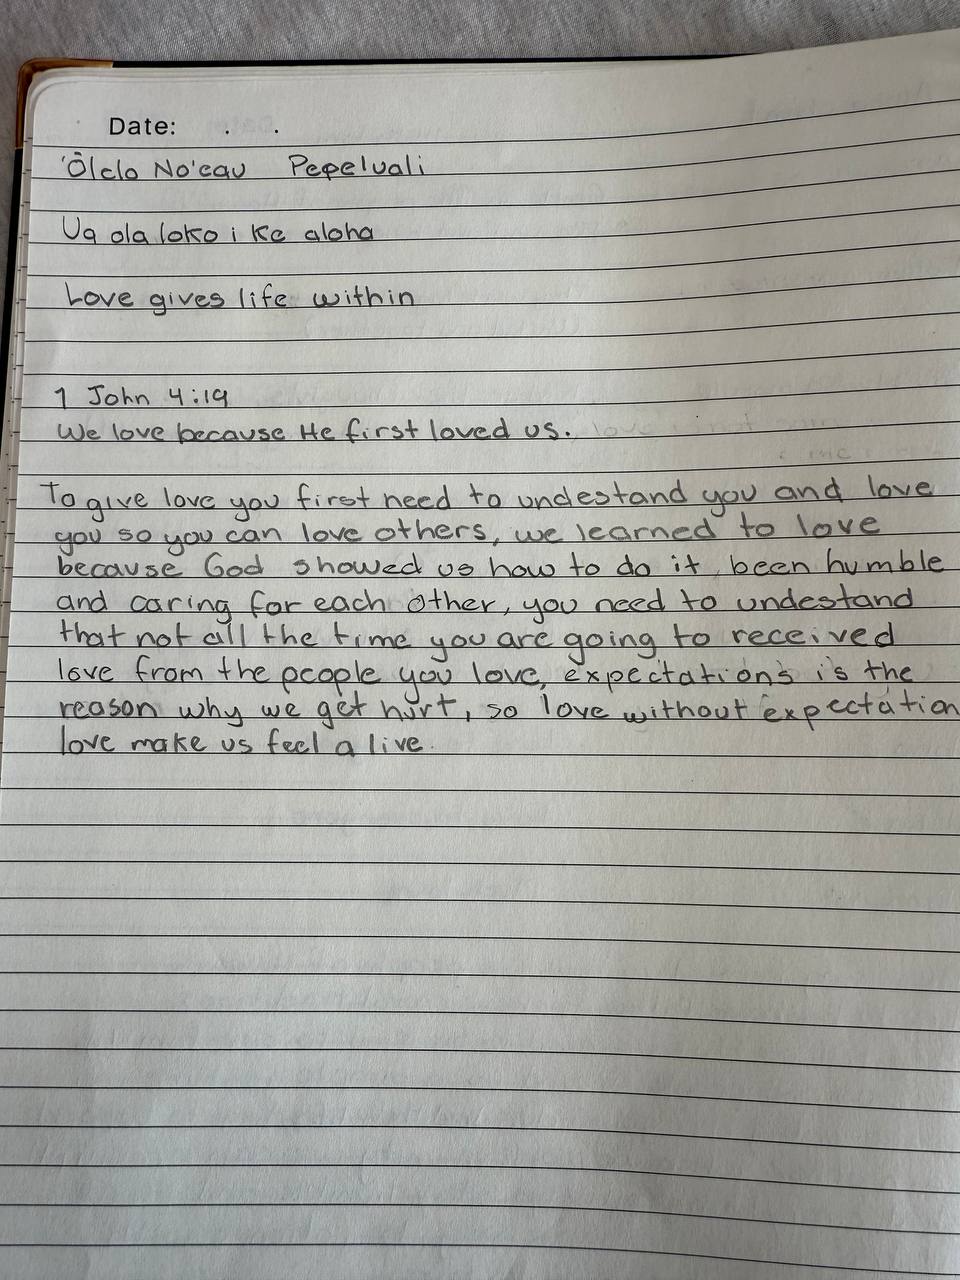 Date: . .
'Ōlelo No'eau Pepeluali
Ua ola loko i ke aloha
Love gives life within
1 John 4:19
We love because He first loved us.
To give love you first need to undestand you and love
you so you can love others, we learned to love
because God showed us how to do it, been humble
and caring for each other, you need to undestand
that not all the time you are going to received
love from the people you love, expectations is the
reason why we get hurt, so love without expectation
love make us feel a live.